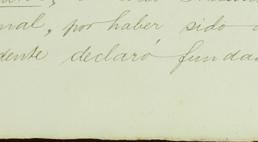 nal, por haber sido
dente declaró funda